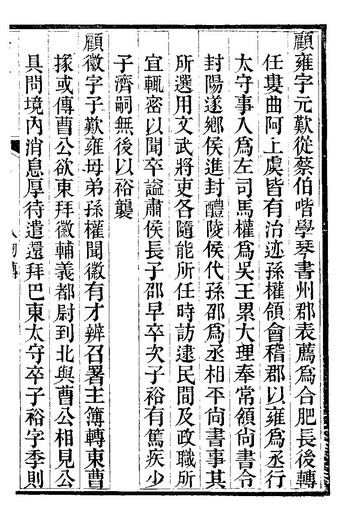 顧雍字元歎從蔡伯喈學琴書州郡表薦爲合肥長後轉
任婁曲阿上虞皆有治迹孫權領會稽郡以雍爲丞行
太守事人爲左司馬權爲吳王累大理奉常領尙書令
封陽遂鄉侯進封醴陵侯代孫邵爲丞相平尙書事其
所選用文武將吏各隨能所任時訪逮民間及政職所
宜輒密以聞卒謚肅侯長子邵早卒次子裕有篤疾少
子濟嗣無後以裕襲
顧徽字子歎雍母弟孫權聞徽有才辨召署主簿轉東曹
掾或傳曹公欲東拜徽輔義都尉到北與曹公相見公
具問境內消息厚待遣還拜巴東太守卒子裕字季則